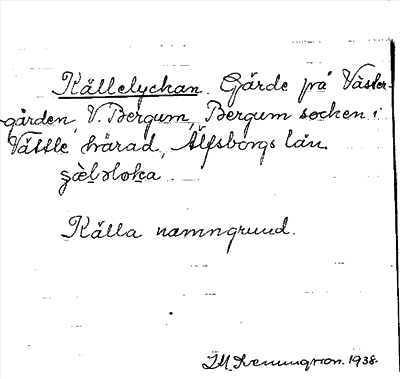 Källelyckan. Gärde på Väster-
gården, V. Bergum, Bergum socken i
Vättle härad, Älfsborgs län.
Källa namngrund.
1938.